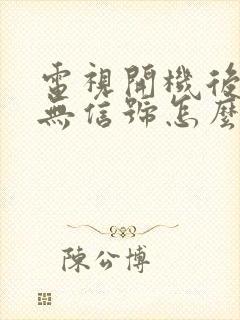 電視開機後
無信號怎麼
陳公博